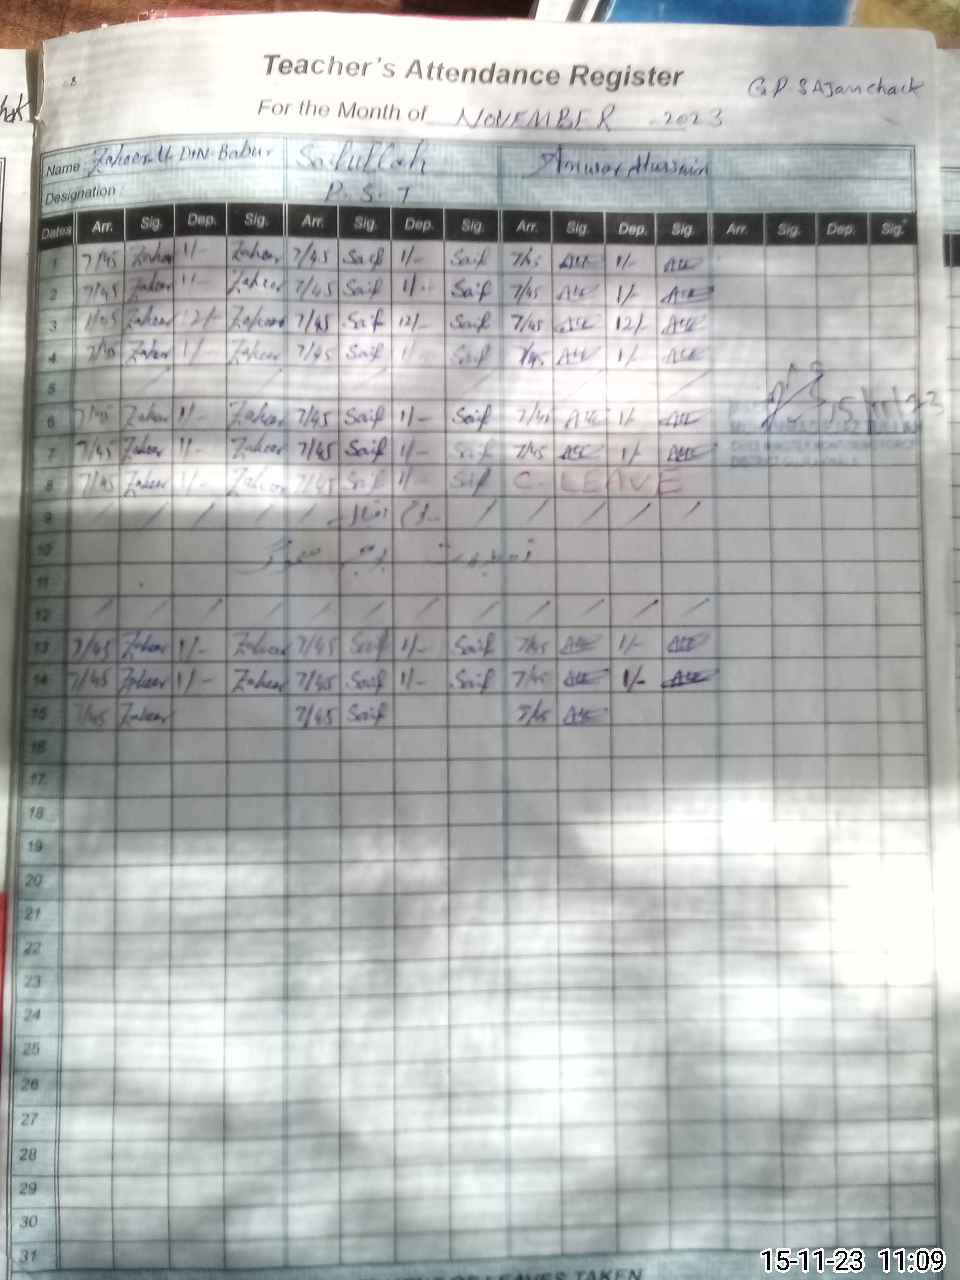 Teacher's Attendance Register
G P S Ajamchack
For the Month of NOVEMBER 2023
Name Zaheer U DIN Babur Saifullah Anwar Hussain
Designation P.S.T
Dates Arr. Sig. Dep. Sig. Arr. Sig. Dep. Sig. Arr. Sig. Dep. Sig. Arr. Sig. Dep. Sig.
1 7/45 Zaheer 1/- Zaheer 7/45 Saif 1/- Saif 7/45 1/-
2 7/45 Zaheer 1/- Zaheer 7/45 Saif 1/- Saif 7/45 1/-
3 7/45 Zaheer 12/- Zaheer 7/45 Saif 12/- Saif 7/45 12/-
4 7/45 Zaheer 1/- Zaheer 7/45 Saif 1/- Saif 7/45 1/-
5
6 7/45 Zaheer 1/- Zaheer 7/45 Saif 1/- Saif 7/45 1/-
15/11/23
7 7/45 Zaheer 1/- Zaheer 7/45 Saif 1/- Saif 7/45 1/-
8 7/45 Zaheer 1/- Zaheer 7/45 Saif 1/- Saif C. LEAVE
9
10
11
12
13 7/45 Zaheer 1/- Zaheer 7/45 Saif 1/- Saif 7/45 1/-
14 7/45 Zaheer 1/- Zaheer 7/45 Saif 1/- Saif 7/45 1/-
15 7/45 Zaheer 7/45 Saif 7/45
16
17
18
19
20
21
22
23
24
25
26
27
28
29
30
31
LEAVES TAKEN
15-11-23 11:09